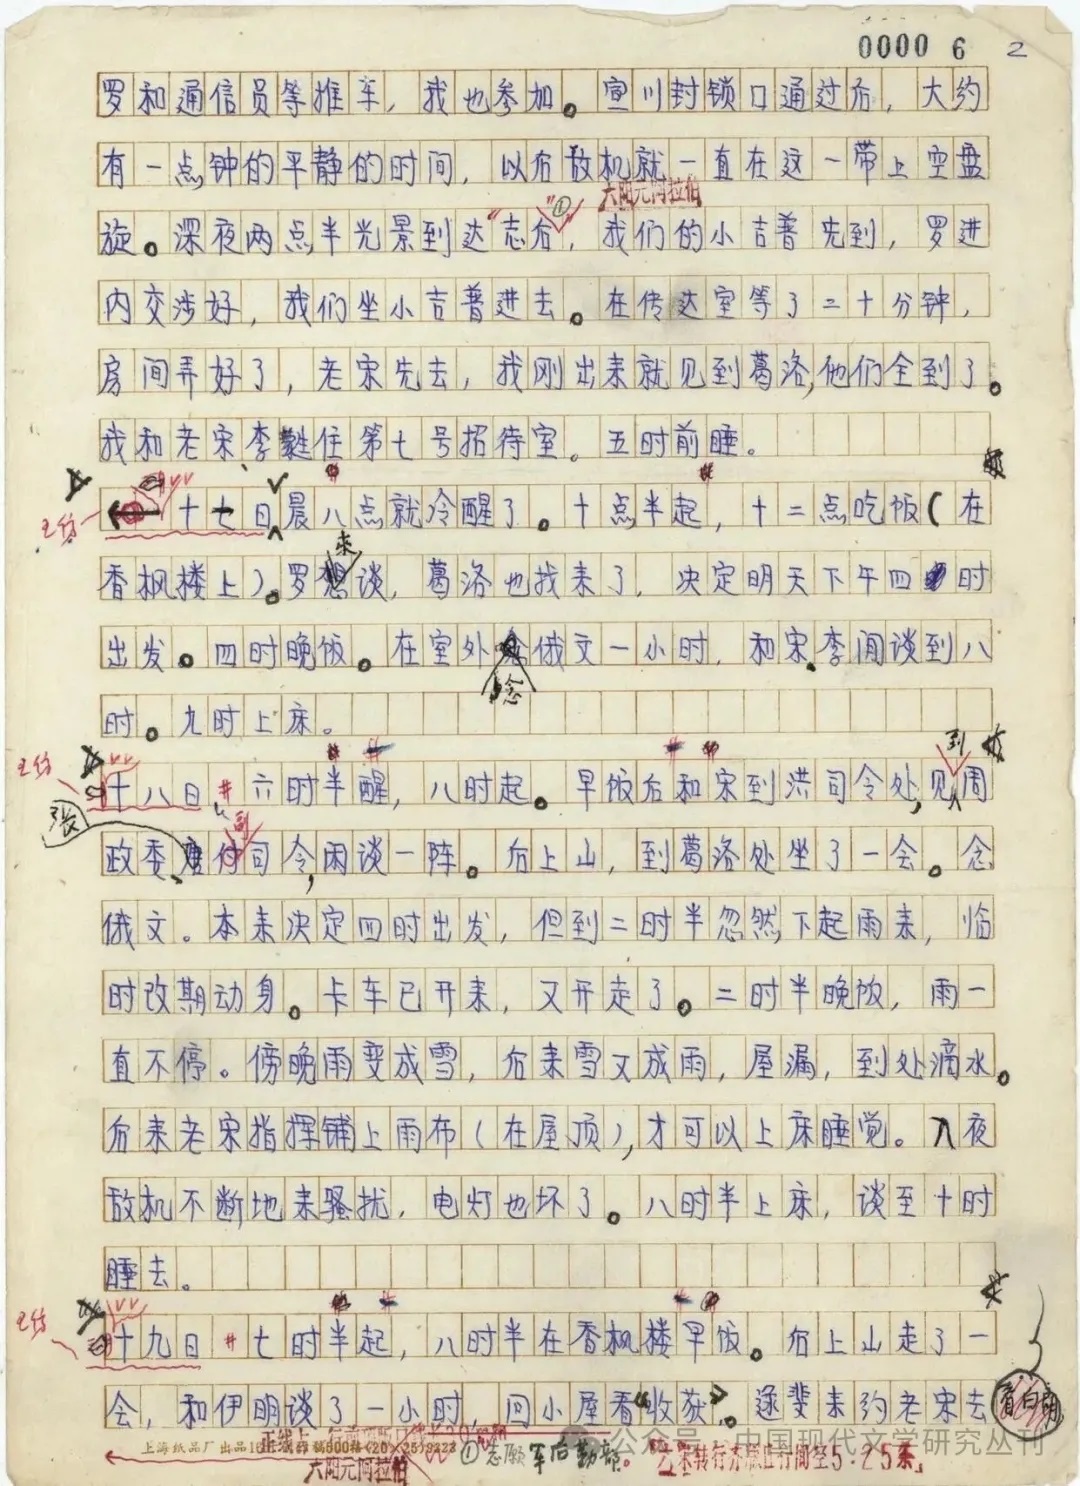 0000 6 2
罗和通信员等推车，我也参加。宣川封锁口通过后，大约
有一点钟的平静的时间，以后敌机就一直在这一带上空盘
六阳元阿拉伯
旋。深夜两点半光景到达“志后”①，我们的小吉普先到，罗进
内交涉好，我们坐小吉普进去。在传达室等了二十分钟，
房间弄好了，老宋先去，我刚出来就见到葛洛，他们全到了。
我和老宋、李甦住第七号招待室。五时前睡。
十七日晨八点就冷醒了。十点半起，十二点吃饭（在
香枫楼上）。罗来谈，葛洛也找来了，决定明天下午四时
出发。四时晚饭。在室外念俄文一小时，和宋、李闲谈到八
时。九时上床。
十八日 六时半醒，八时起。早饭后和宋到洪司令处，见到周
政委、张副司令，闲谈一阵。后上山，到葛洛处坐了一会。念
俄文。本来决定四时出发，但到二时半忽然下起雨来，临
时改期动身。卡车已开来，又开走了。二时半晚饭，雨一
直不停。傍晚雨变成雪，后来雪又成雨，屋漏，到处滴水。
后来老宋指挥铺上雨布（在屋顶），才可以上床睡觉。入夜
敌机不断地来骚扰，电灯也坏了。八时半上床，谈至十时
睡去。
十九日 七时半起，八时半在香枫楼早饭。后上山走了一
会，和伊明谈了一小时，回小屋看“收获”。逯斐来约老宋去
上海纸品厂出品
①志愿军后勤部。
六阳元阿拉伯
公众号 · 中国现代文学研究丛刊